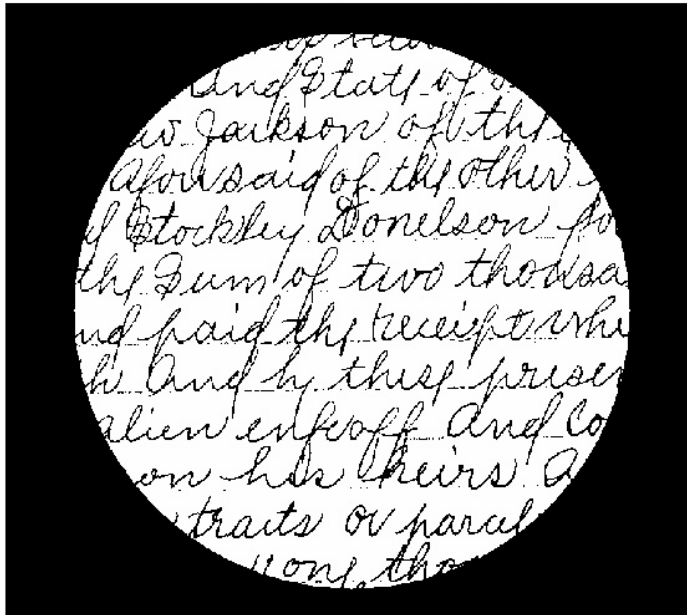 And State of
Jackson of the
Aforesaid of the other
Stockley Donelson
the Sum of two thousa
nd paid the receipt whe
And by these presen
alien enfeoff And Co
on his heirs A
traits or parcel
one tho